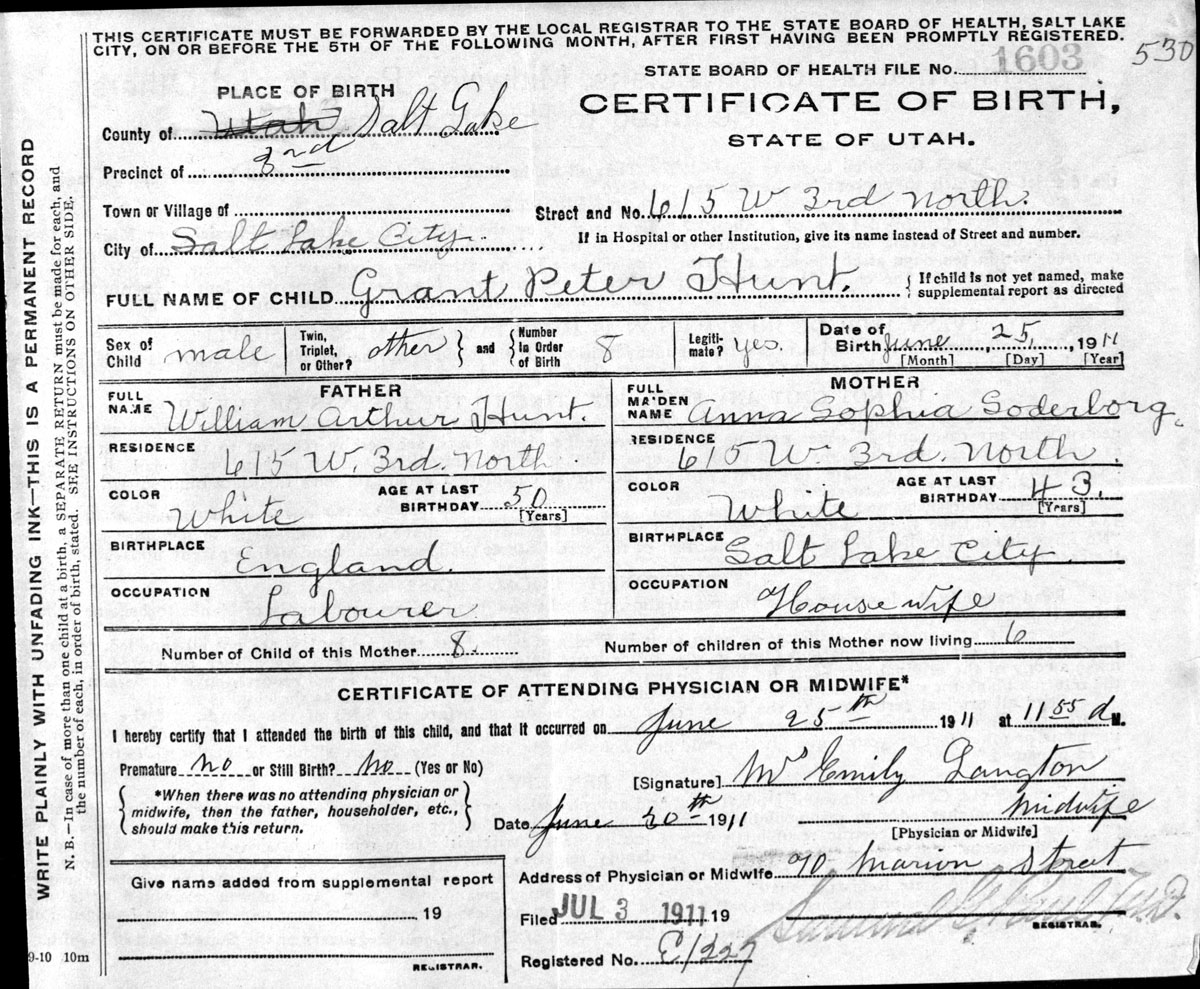 THIS CERTIFICATE MUST BE FORWARDED BY THE LOCAL REGISTRAR TO THE STATE BOARD OF HEALTH, SALT LAKE
CITY, ON OR BEFORE THE 5TH OF THE FOLLOWING MONTH, AFTER FIRST HAVING BEEN PROMPTLY REGISTERED.
530
STATE BOARD OF HEALTH FILE No. 1603
PLACE OF BIRTH
CERTIFICATE OF BIRTH,
STATE OF UTAH.
County of Utah Salt Lake
Precinct of 2nd
Town or Village of
Street and No. 615 W 3rd North.
City of Salt Lake City.
If in Hospital or other Institution, give its name instead of Street and number.
FULL NAME OF CHILD Grant Peter Hunt.
{ If child is not yet named, make
supplemental report as directed
Sex of Child male
Twin, Triplet, or Other? other } and { Number In Order of Birth 8
Legiti-mate? yes.
Date of Birth June 25, 1911
[Month] [Day] [Year]
FATHER
FULL NAME William Arthur Hunt.
RESIDENCE 615 W. 3rd. North
COLOR White AGE AT LAST BIRTHDAY 50
[Years]
BIRTHPLACE England.
OCCUPATION Labourer
MOTHER
FULL MAIDEN NAME Anna Sophia Soderborg
RESIDENCE 615 W. 3rd. North.
COLOR White AGE AT LAST BIRTHDAY 43.
[Years]
BIRTHPLACE Salt Lake City
OCCUPATION House wife
Number of Child of this Mother 8. Number of children of this Mother now living 6
CERTIFICATE OF ATTENDING PHYSICIAN OR MIDWIFE*
I hereby certify that I attended the birth of this child, and that it occurred on June 25th 1911 at 11 55 M.
Premature no or Still Birth? No (Yes or No)
[Signature] Mrs Emily Langton
{ *When there was no attending physician or
midwife, then the father, householder, etc.,
should make this return. }
Date June 20th 1911
midwife
[Physician or Midwife]
Address of Physician or Midwife 70 Marion Street
Give name added from supplemental report
19
REGISTRAR.
Filed JUL 3 1911 19
REGISTRAR.
Registered No. C1227
9-10 10m
WRITE PLAINLY WITH UNFADING INK—THIS IS A PERMANENT RECORD
N. B.—In case of more than one child at a birth, a SEPARATE RETURN must be made for each, and
the number of each, in order of birth, stated. SEE INSTRUCTIONS ON OTHER SIDE.